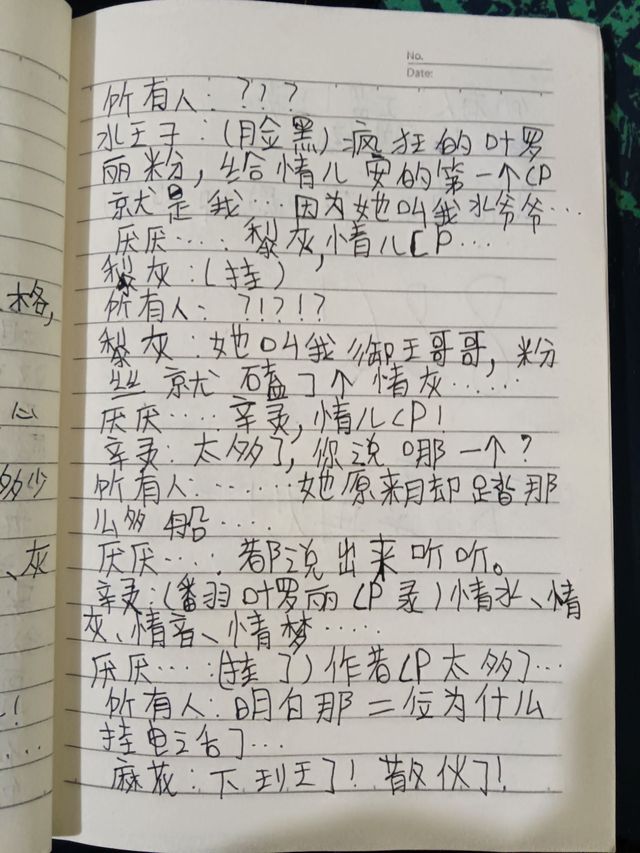 No.
Date:
所有人：？！？
水王子：（脸黑）疯狂的叶罗
丽粉，给情儿安的第一个CP
就是我…因为她叫我水爷爷…
厌厌……黎灰，情儿CP…
黎灰：（挂）
所有人：？！？！？
黎灰：她叫我御王哥哥，粉
丝就磕了个情灰……
厌厌……辛灵，情儿CP！
辛灵：太多了，你说哪一个？
所有人：……她原来却踏那
么多船……
厌厌……都说出来听听。
辛灵：（翻羽叶罗丽CP录）情水、情
灰、情音、情梦……
厌厌……（挂了）作者CP太多了…
所有人：明白那二位为什么
挂电话了…
麻花：下到王了！散伙了！
格，
心
多少
、灰
！
…